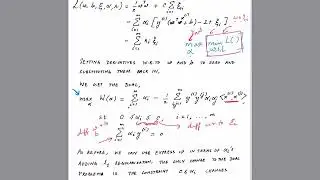 L(w, b, ξ, α, r) = 1/2 wᵀw + C Σ ξi
- Σ αi [y⁽ⁱ⁾(wᵀx⁽ⁱ⁾ + b) - 1 + ξi]
- Σ ri ξi
max α min w,b L( )
SETTING DERIVATIVES W.R.TO W AND b TO ZERO AND
SUBSTITUTING THEM BACK IN,
WE GET THE DUAL,
max α W(α) = Σ αi - 1/2 Σ y⁽ⁱ⁾ y⁽ʲ⁾ αi αj <x⁽ⁱ⁾, x⁽ʲ⁾>
s.t 0 ≤ αi ≤ C, i = 1, ..., m
diff b Σ αi y⁽ⁱ⁾ = 0 diff w.r.to ξi
AS BEFORE, WE CAN USE EXPRESS W IN TERMS OF αi's
ADDING L1 REGULARIZATION, THE ONLY CHANGE TO THE DUAL
PROBLEM IS THE CONSTRAINT 0 ≤ αi CHANGES